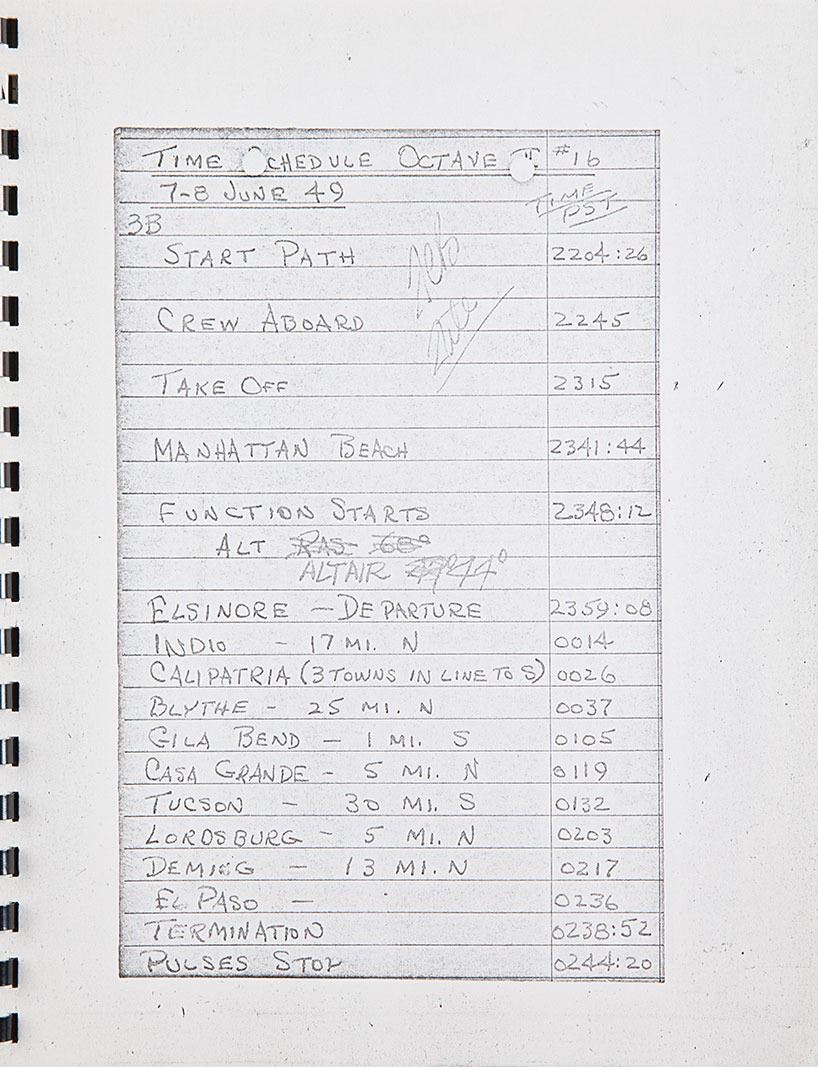 TIME SCHEDULE OCTAVE II #16
7-8 JUNE 49 TIME PST
3B
START PATH 2204:26
CREW ABOARD 2245
TAKE OFF 2315
MANHATTAN BEACH 2341:44
FUNCTION STARTS 2348:12
ALT RAS 68°
ALTAIR 44°
ELSINORE – DEPARTURE 2359:08
INDIO - 17 MI. N 0014
CALIPATRIA (3 TOWNS IN LINE TO S) 0026
BLYTHE - 25 MI. N 0037
GILA BEND – 1 MI. S 0105
CASA GRANDE - 5 MI. N 0119
TUCSON – 30 MI. S 0132
LORDSBURG - 5 MI. N 0203
DEMING – 13 MI. N 0217
EL PASO – 0236
TERMINATION 0238:52
PULSES STOP 0244:20